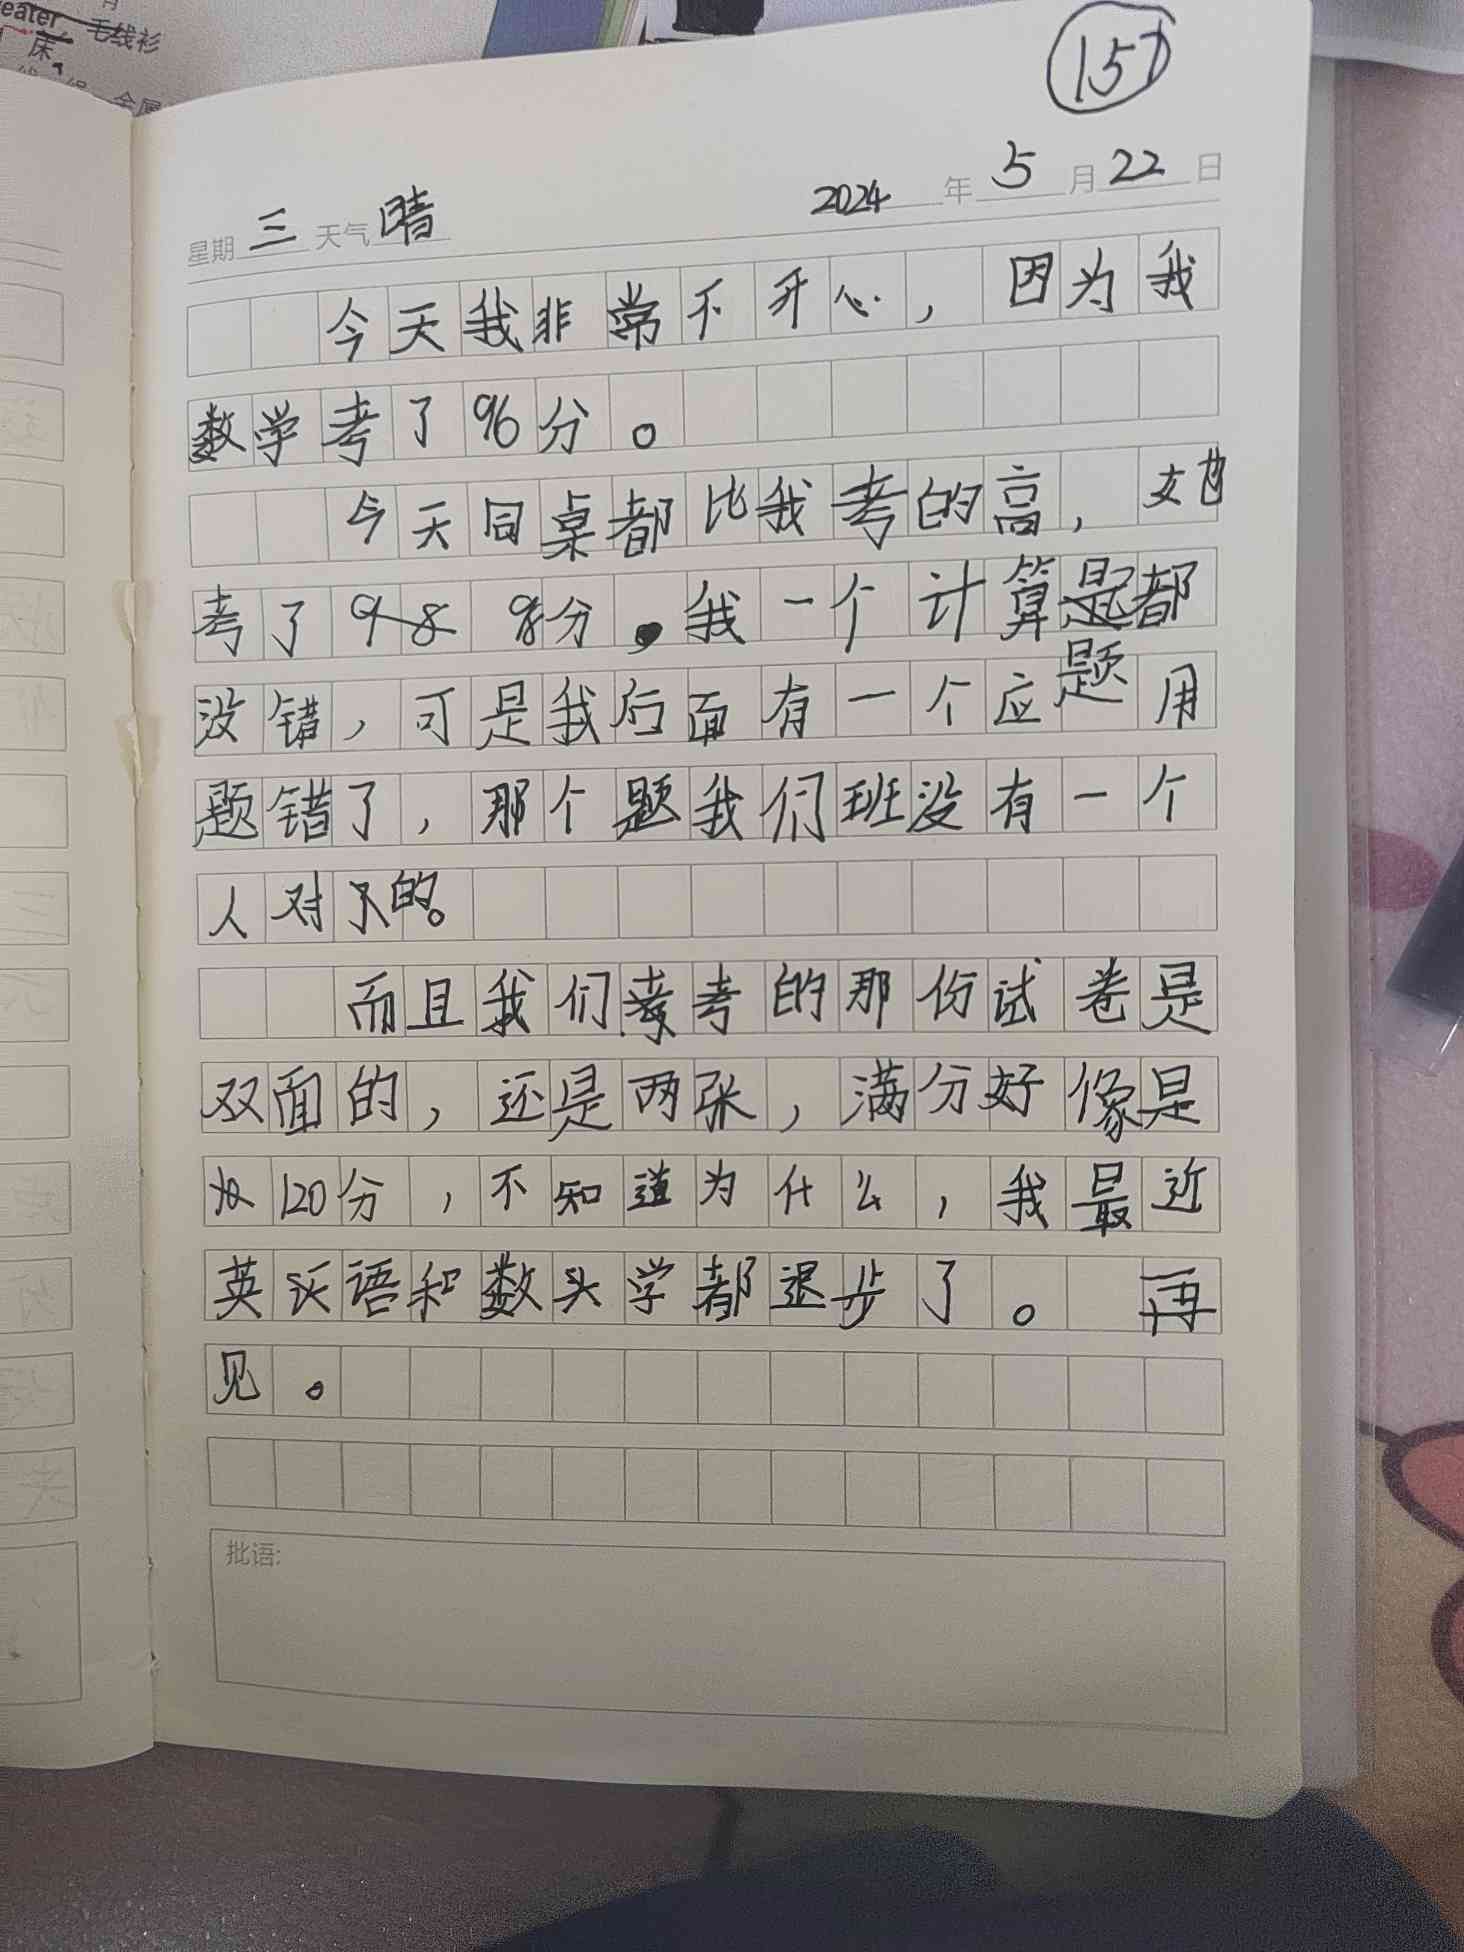 eater
毛线衫
床
金属
157
星期 三 天气 晴 2024 年 5 月 22 日
今天我非常不开心，因为我
数学考了96分。
今天同桌都比我考的高，她
考了98分。我一个计算题都
没错，可是我后面有一个应用
题错了，那个题我们班没有一个
人对的。
而且我们考的那份试卷是
双面的，还是两张，满分好像是
120分，不知道为什么，我最近
英语和数学都退步了。 再
见。
批语: